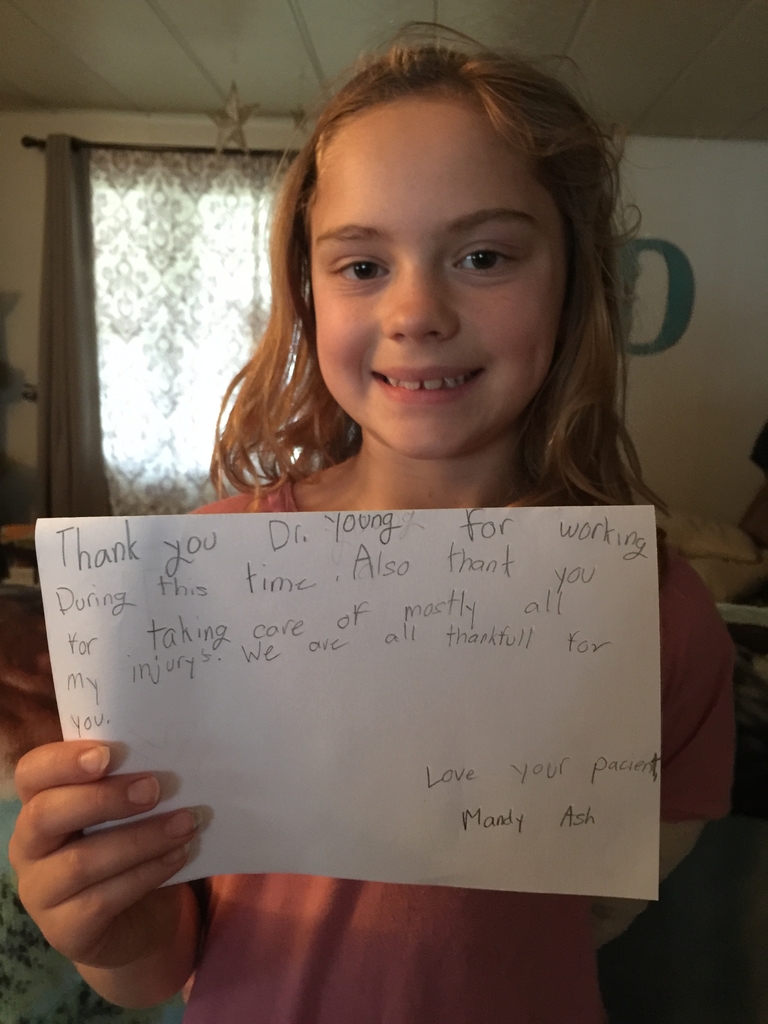 Thank you Dr. Young for working
During this time. Also thank you
for taking care of mostly all
my injury's. We are all thankfull for
you.
Love your pacient
Mandy Ash
D